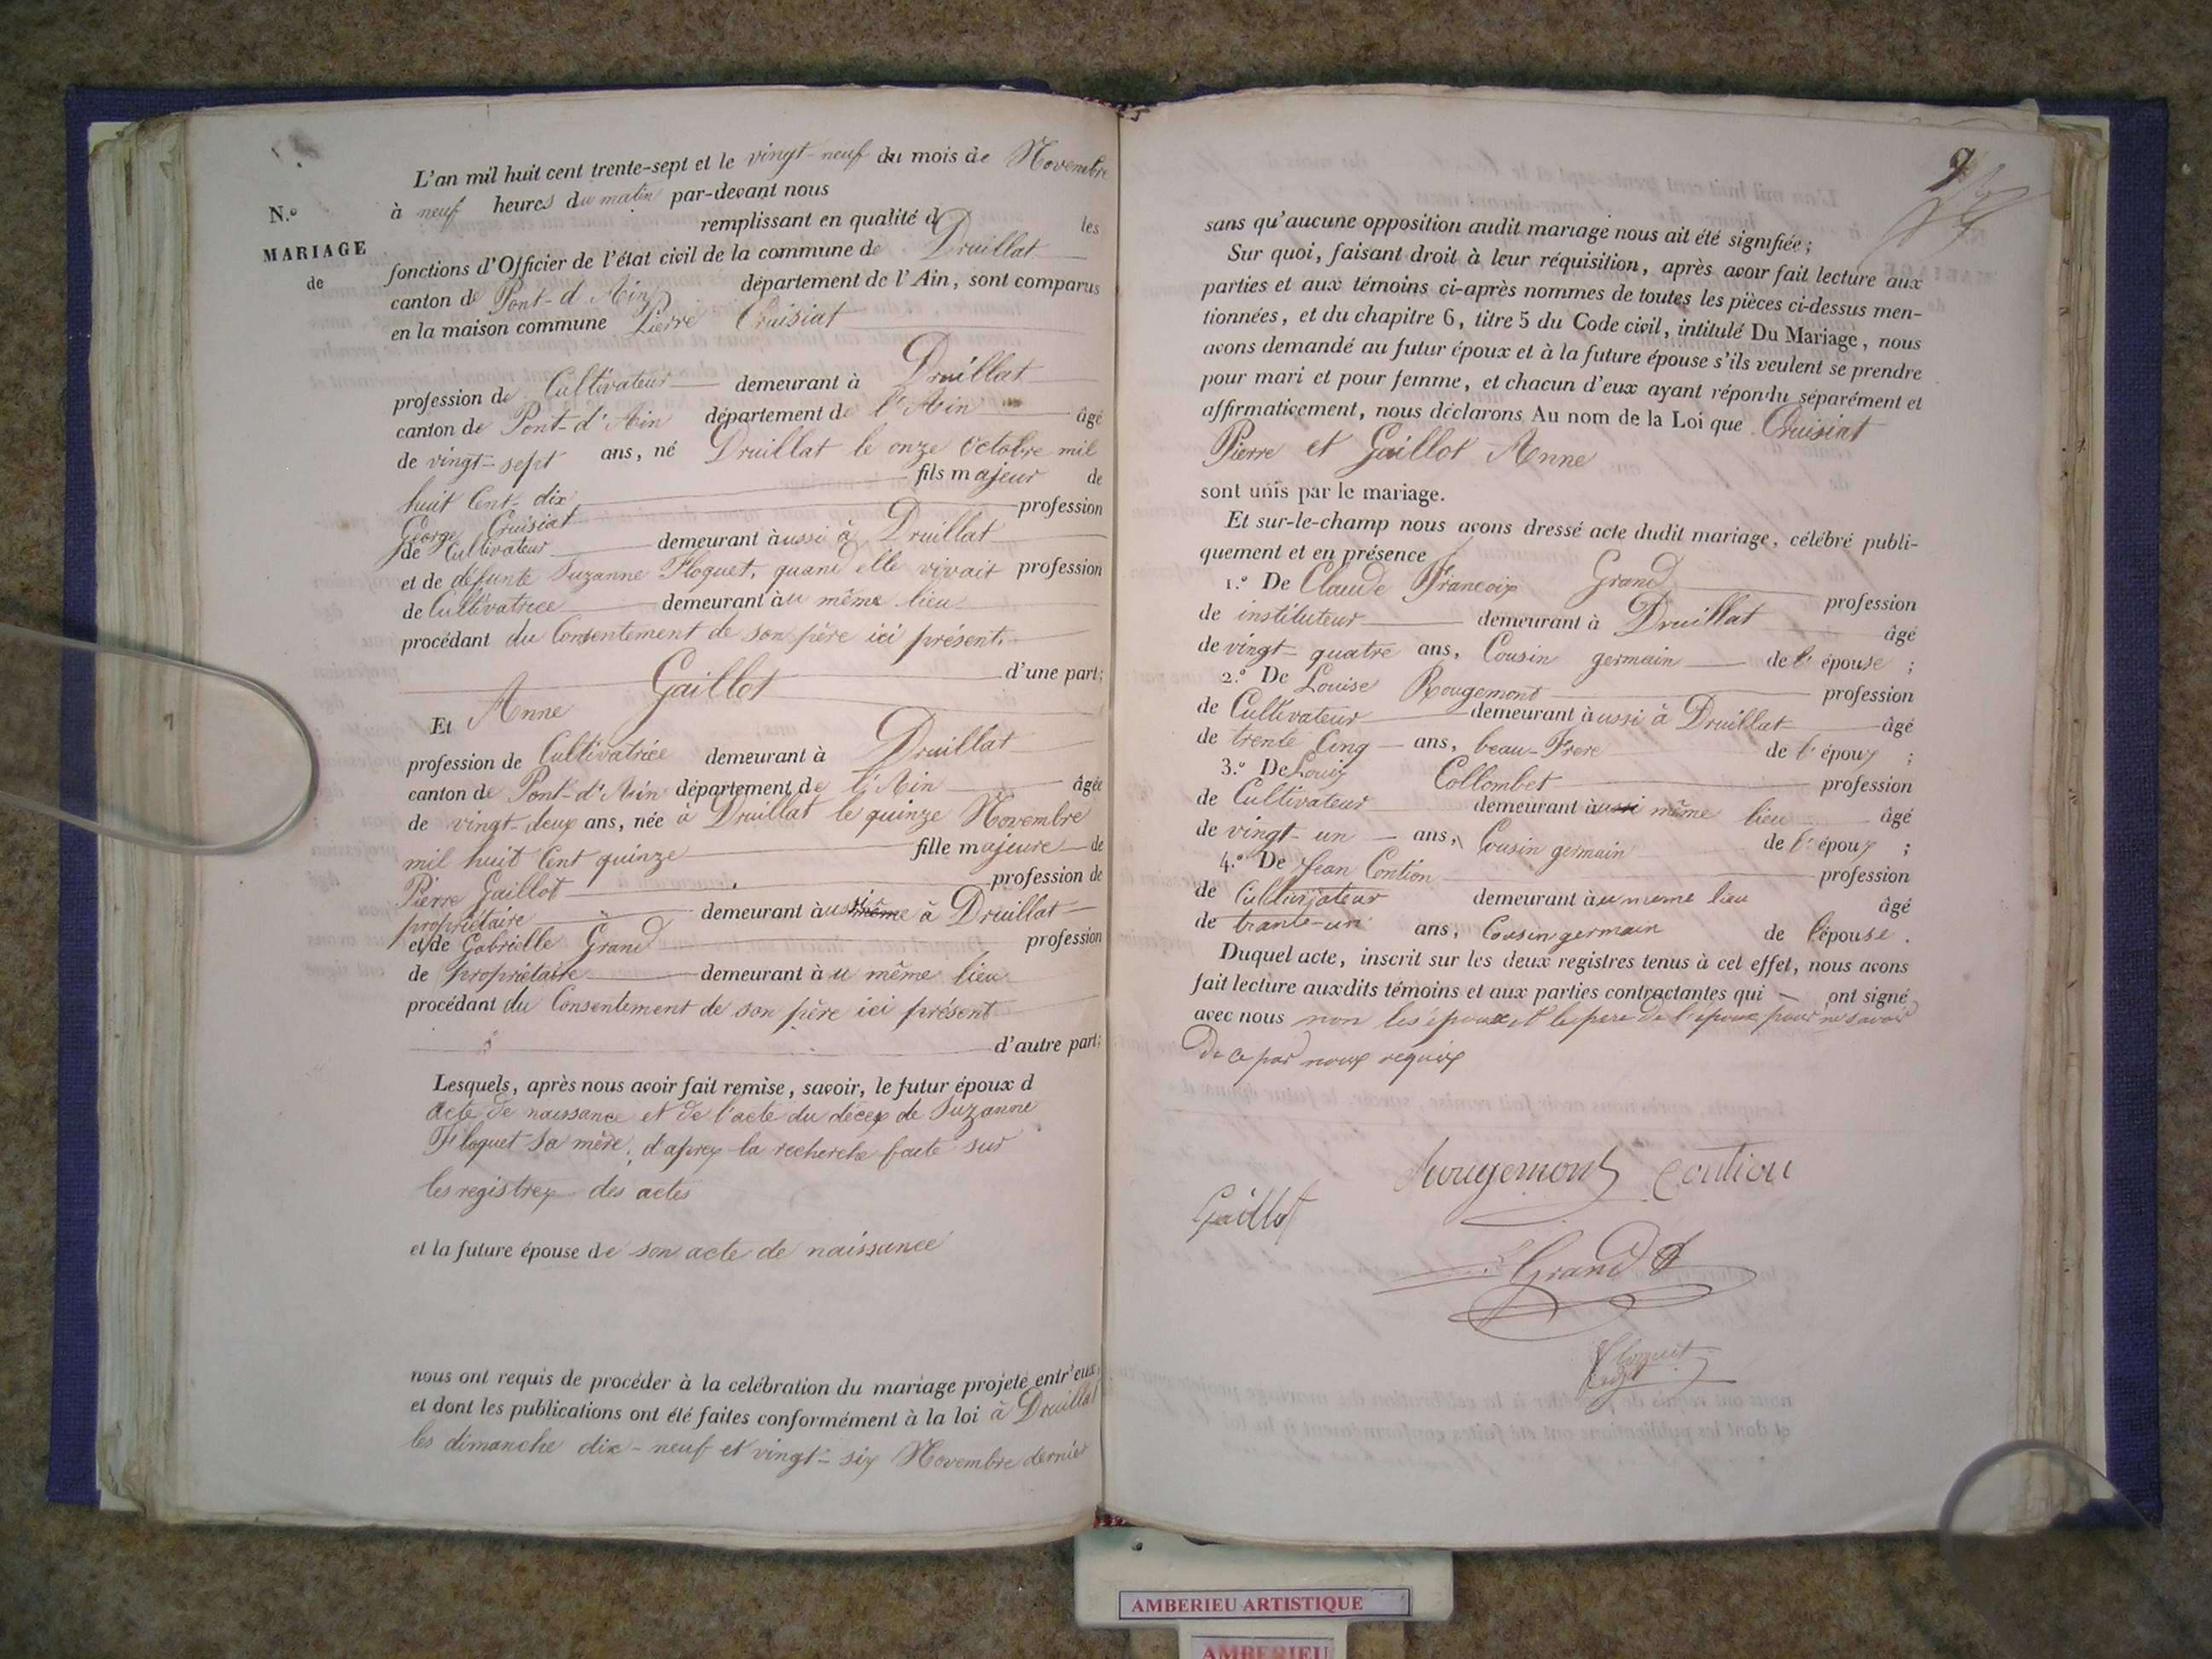 L'an mil huit cent trente-sept et le vingt-neuf du mois de Novembre
à neuf heures du matin par-devant nous
remplissant en qualité d les
N.º
MARIAGE
de
fonctions d'Officier de l'état civil de la commune de Druillat
canton de Pont-d'Ain département de l'Ain, sont comparus
en la maison commune Pierre Cruisiat
profession de Cultivateur demeurant à Druillat
canton de Pont-d'Ain département de l'Ain âgé
de vingt-sept ans, né Druillat le onze Octobre mil
huit Cent dix fils majeur de
George Cruisiat profession
de Cultivateur demeurant aussi à Druillat
et de défunte Suzanne Floquet, quand elle vivait profession
de Cultivatrice demeurant au même lieu
procédant du Consentement de son père ici présent.
d'une part;
Et Anne Gaillot
profession de Cultivatrice demeurant à Druillat
canton de Pont-d'Ain département de l'Ain âgée
de vingt-deux ans, née à Druillat le quinze Novembre
mil huit Cent quinze fille majeure de
Pierre Gaillot profession de
propriétaire demeurant aussi même à Druillat
et de Gabrielle Grand profession
de propriétaire demeurant au même lieu
procédant du Consentement de son père ici présent
d'autre part;
Lesquels, après nous avoir fait remise, savoir, le futur époux d
acte de naissance et de l'acte du décex de Suzanne
Floquet sa mère, d'aprex la recherche faite sur
les registrex des actes
et la future épouse de son acte de naissance
nous ont requis de procéder à la celébration du mariage projeté entr'eux,
et dont les publications ont été faites conformément à la loi à Druillat
les dimanche dix-neuf et vingt-six Novembre dernier
9
sans qu'aucune opposition audit mariage nous ait été signifiée;
Sur quoi, faisant droit à leur réquisition, après avoir fait lecture aux
parties et aux témoins ci-après nommes de toutes les pièces ci-dessus men-
tionnées, et du chapitre 6, titre 5 du Code civil, intitulé Du Mariage, nous
avons demandé au futur époux et à la future épouse s'ils veulent se prendre
pour mari et pour femme, et chacun d'eux ayant répondu séparément et
affirmativement, nous déclarons Au nom de la Loi que Cruisiat
Pierre et Gaillot Anne
sont unis par le mariage.
Et sur-le-champ nous avons dressé acte dudit mariage, célébré publi-
quement et en présence
1.º De Claude Francoix Grand profession
de instituteur demeurant à Druillat âgé
de vingt-quatre ans, Cousin germain de l'épouse ;
2.º De Louise Rougemont profession
de Cultivateur demeurant aussi à Druillat âgé
de trente Cinq ans, beau-Frere de l'époux ;
3.º De Louix Collombet profession
de Cultivateur demeurant aussi même lieu âgé
de vingt-un ans, Cousin germain de l'époux ;
4.º De Jean Contion profession
de Cultivateur demeurant au meme lieu âgé
de trante-un ans, Cousin germain de l'épouse.
Duquel acte, inscrit sur les deux registres tenus à cet effet, nous avons
fait lecture auxdits témoins et aux parties contractantes qui ont signé
avec nous non les époux et le père de l'époux pour ne savoir
De ce par noux requix
Rougemont Contion
Gaillot
Grand
Floquet
AMBERIEU ARTISTIQUE
AMBERIEU